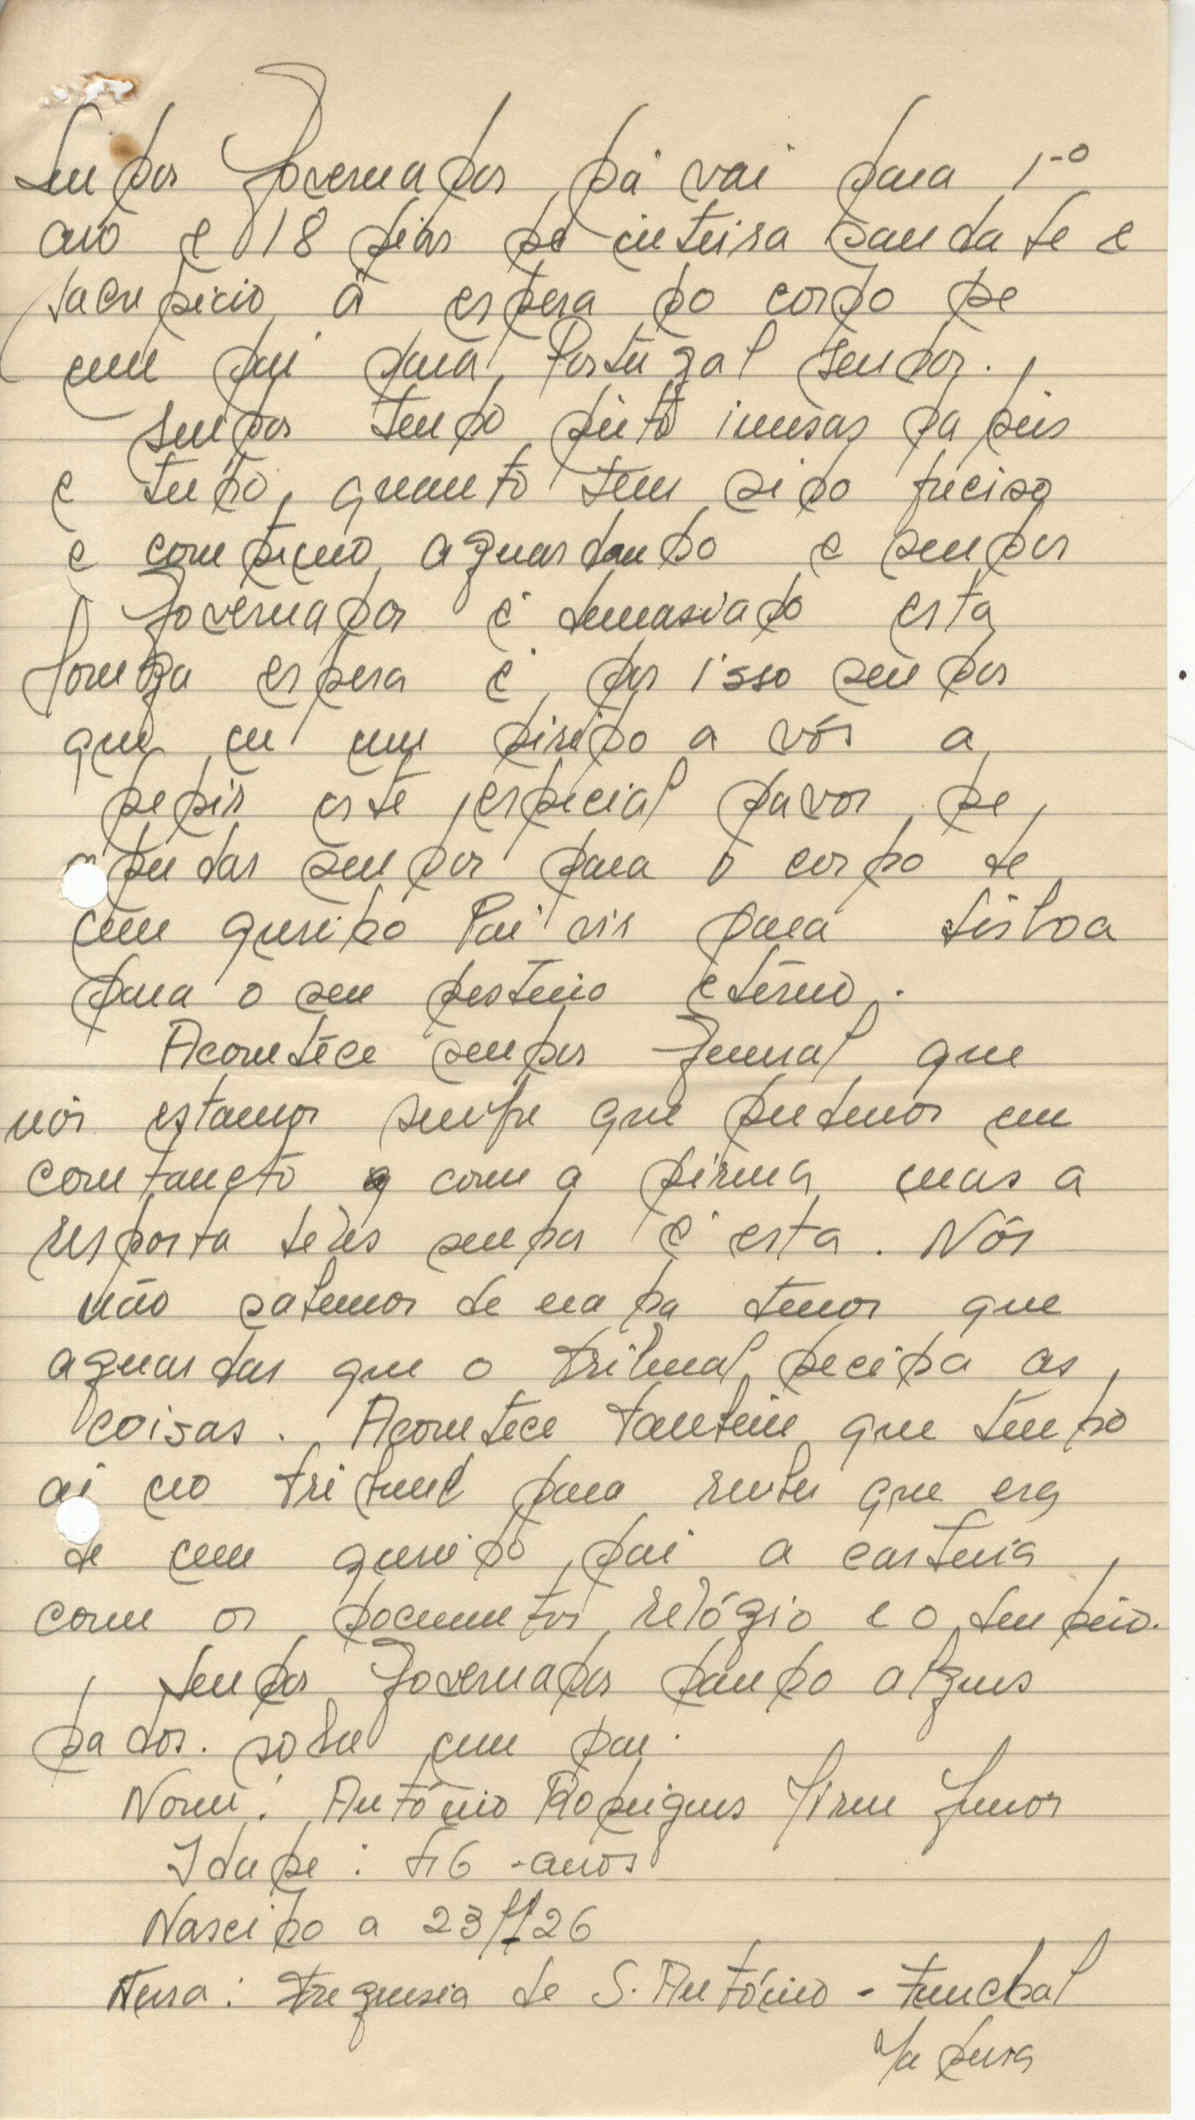 Senhor Governador, já vai para 1-º
ano e 18 dias de inteira saudade e
sacrificio á espera do corpo de
meu pai para Portugal senhor.
Senhor tenho feito imensas papeis
e tudo, quanto tem sido preciso
e continuo aguardando e senhor
Governador é demasiado esta
longa espera é por isso senhor
que eu me dirijo a vós a
pedir este especial favor de
ajudar senhor para o corpo de
meu querido Pai vir para Lisboa
para o seu destino eterno.
Acontece senhor General que
nós estamos sempre que podemos em
contancto com a firma mas a
resposta deles senhor é esta. Nós
não sabemos de nada temos que
aguardar que o tribunal decida as
coisas. Acontece também que tenho
ai no tribunal para receber que era
de meu querido pai a carteira
com os documentos relógio e o dinheiro.
Senhor Governador dando alguns
dados sobre meu pai.
Nome: António Rodrigues Júnior
Idade: 46 -anos
Nascido a 23 26
Terra: Freguesia de S. António - Funchal
Madeira